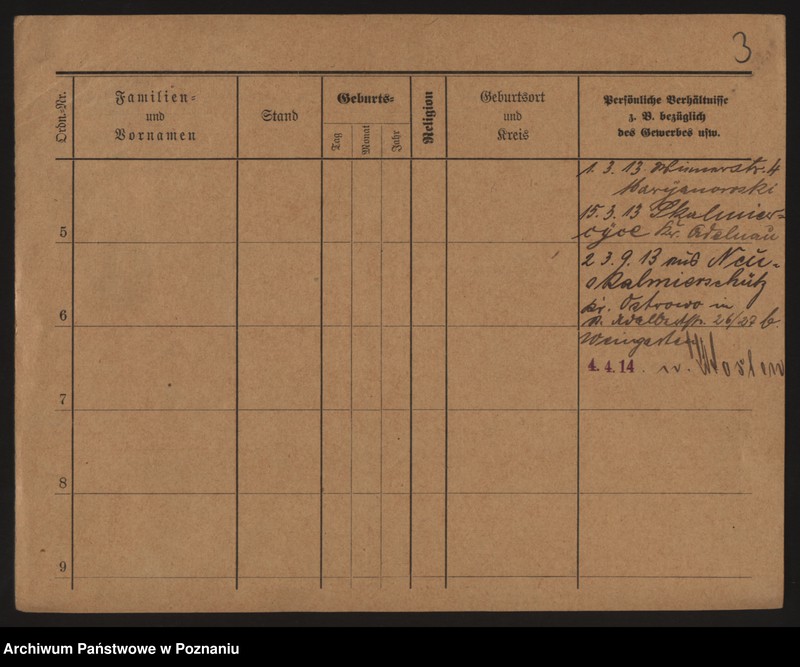 3
Ordn.-Nr.
Familien-
und
Vornamen
Stand
Geburts-
Tag
Monat
Jahr
Religion
Geburtsort
und
Kreis
Persönliche Verhältnisse
z. B. bezüglich
des Gewerbes usw.
1. 3. 13 str. 4
Maryanowski
15. 3. 13 Skalmier-
cyce Kr. Adelnau
23. 9. 13 aus Neu-
skalmierschütz
kr. Ostrowo in
26/27 b.
Weingarten
4. 4. 14. n.
5
6
7
8
9
Archiwum Państwowe w Poznaniu